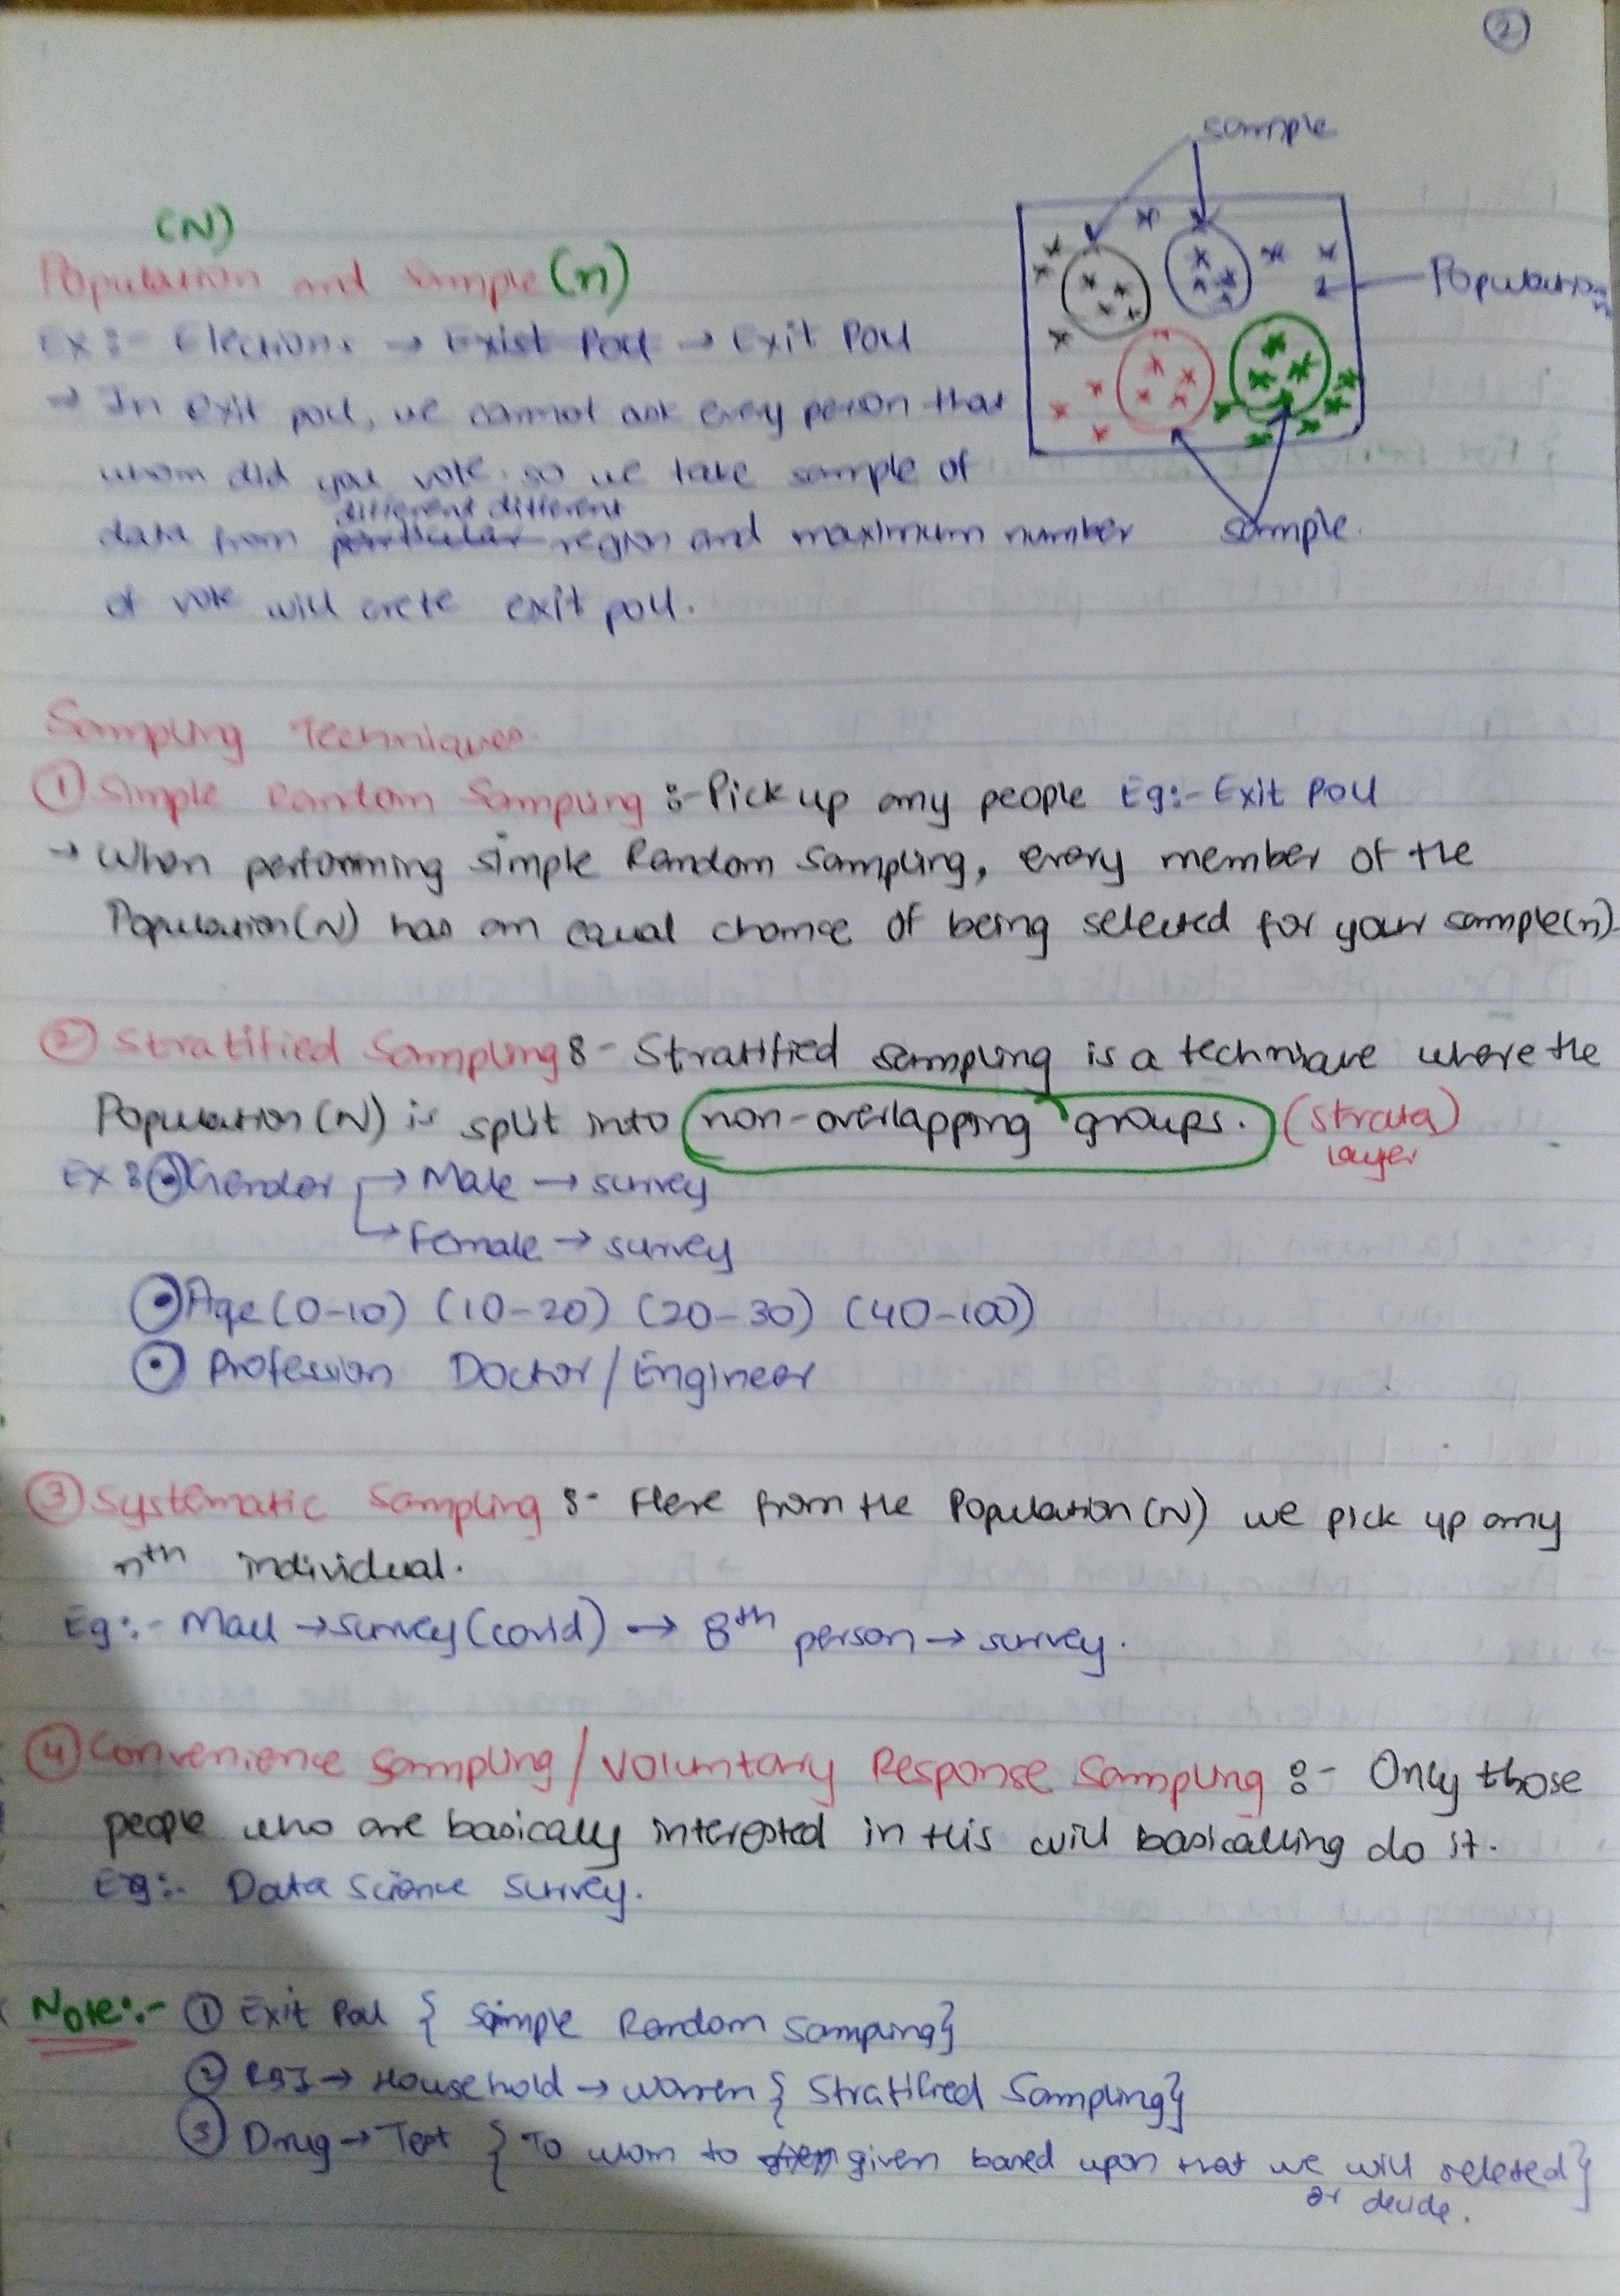 2
sample
(N)
Population and Sample (n)
Population
Ex :- Elections → Exist Poll → Exit Poll
→ In exit poll, we cannot ask every person that
whom did you vote. so we take sample of
different different
data from particular region and maximum number
sample.
of vote will crete exit poll.
Sampling Techniques
① Simple Random Sampling :- Pick up any people Eg:- Exit Poll
→ When performing simple Random Sampling, every member of the
Population(N) has an equal chance of being selected for your sample(n).
② Stratified Sampling :- Stratified sampling is a technique where the
Population (N) is split into non-overlapping groups. (Strata)
layer
Ex : ⊙ Gender → Male → survey
→ Female → survey
⊙ Age (0-10) (10-20) (20-30) (40-100)
⊙ Profession Doctor / Engineer
③ Systematic Sampling :- Here from the Population (N) we pick up any
nth individual.
Eg:- Mall → survey (covid) → 8th person → survey.
④ Convenience Sampling / Voluntary Response Sampling :- Only those
people who are basically interested in this will basicalling do it.
Eg:- Data Science Survey.
Note:- ① Exit Poll { Simple Random Sampling}
② RBI → Household → women { Stratified Sampling}
③ Drug → Test { To whom to given based upon that we will seleted}
or decide.